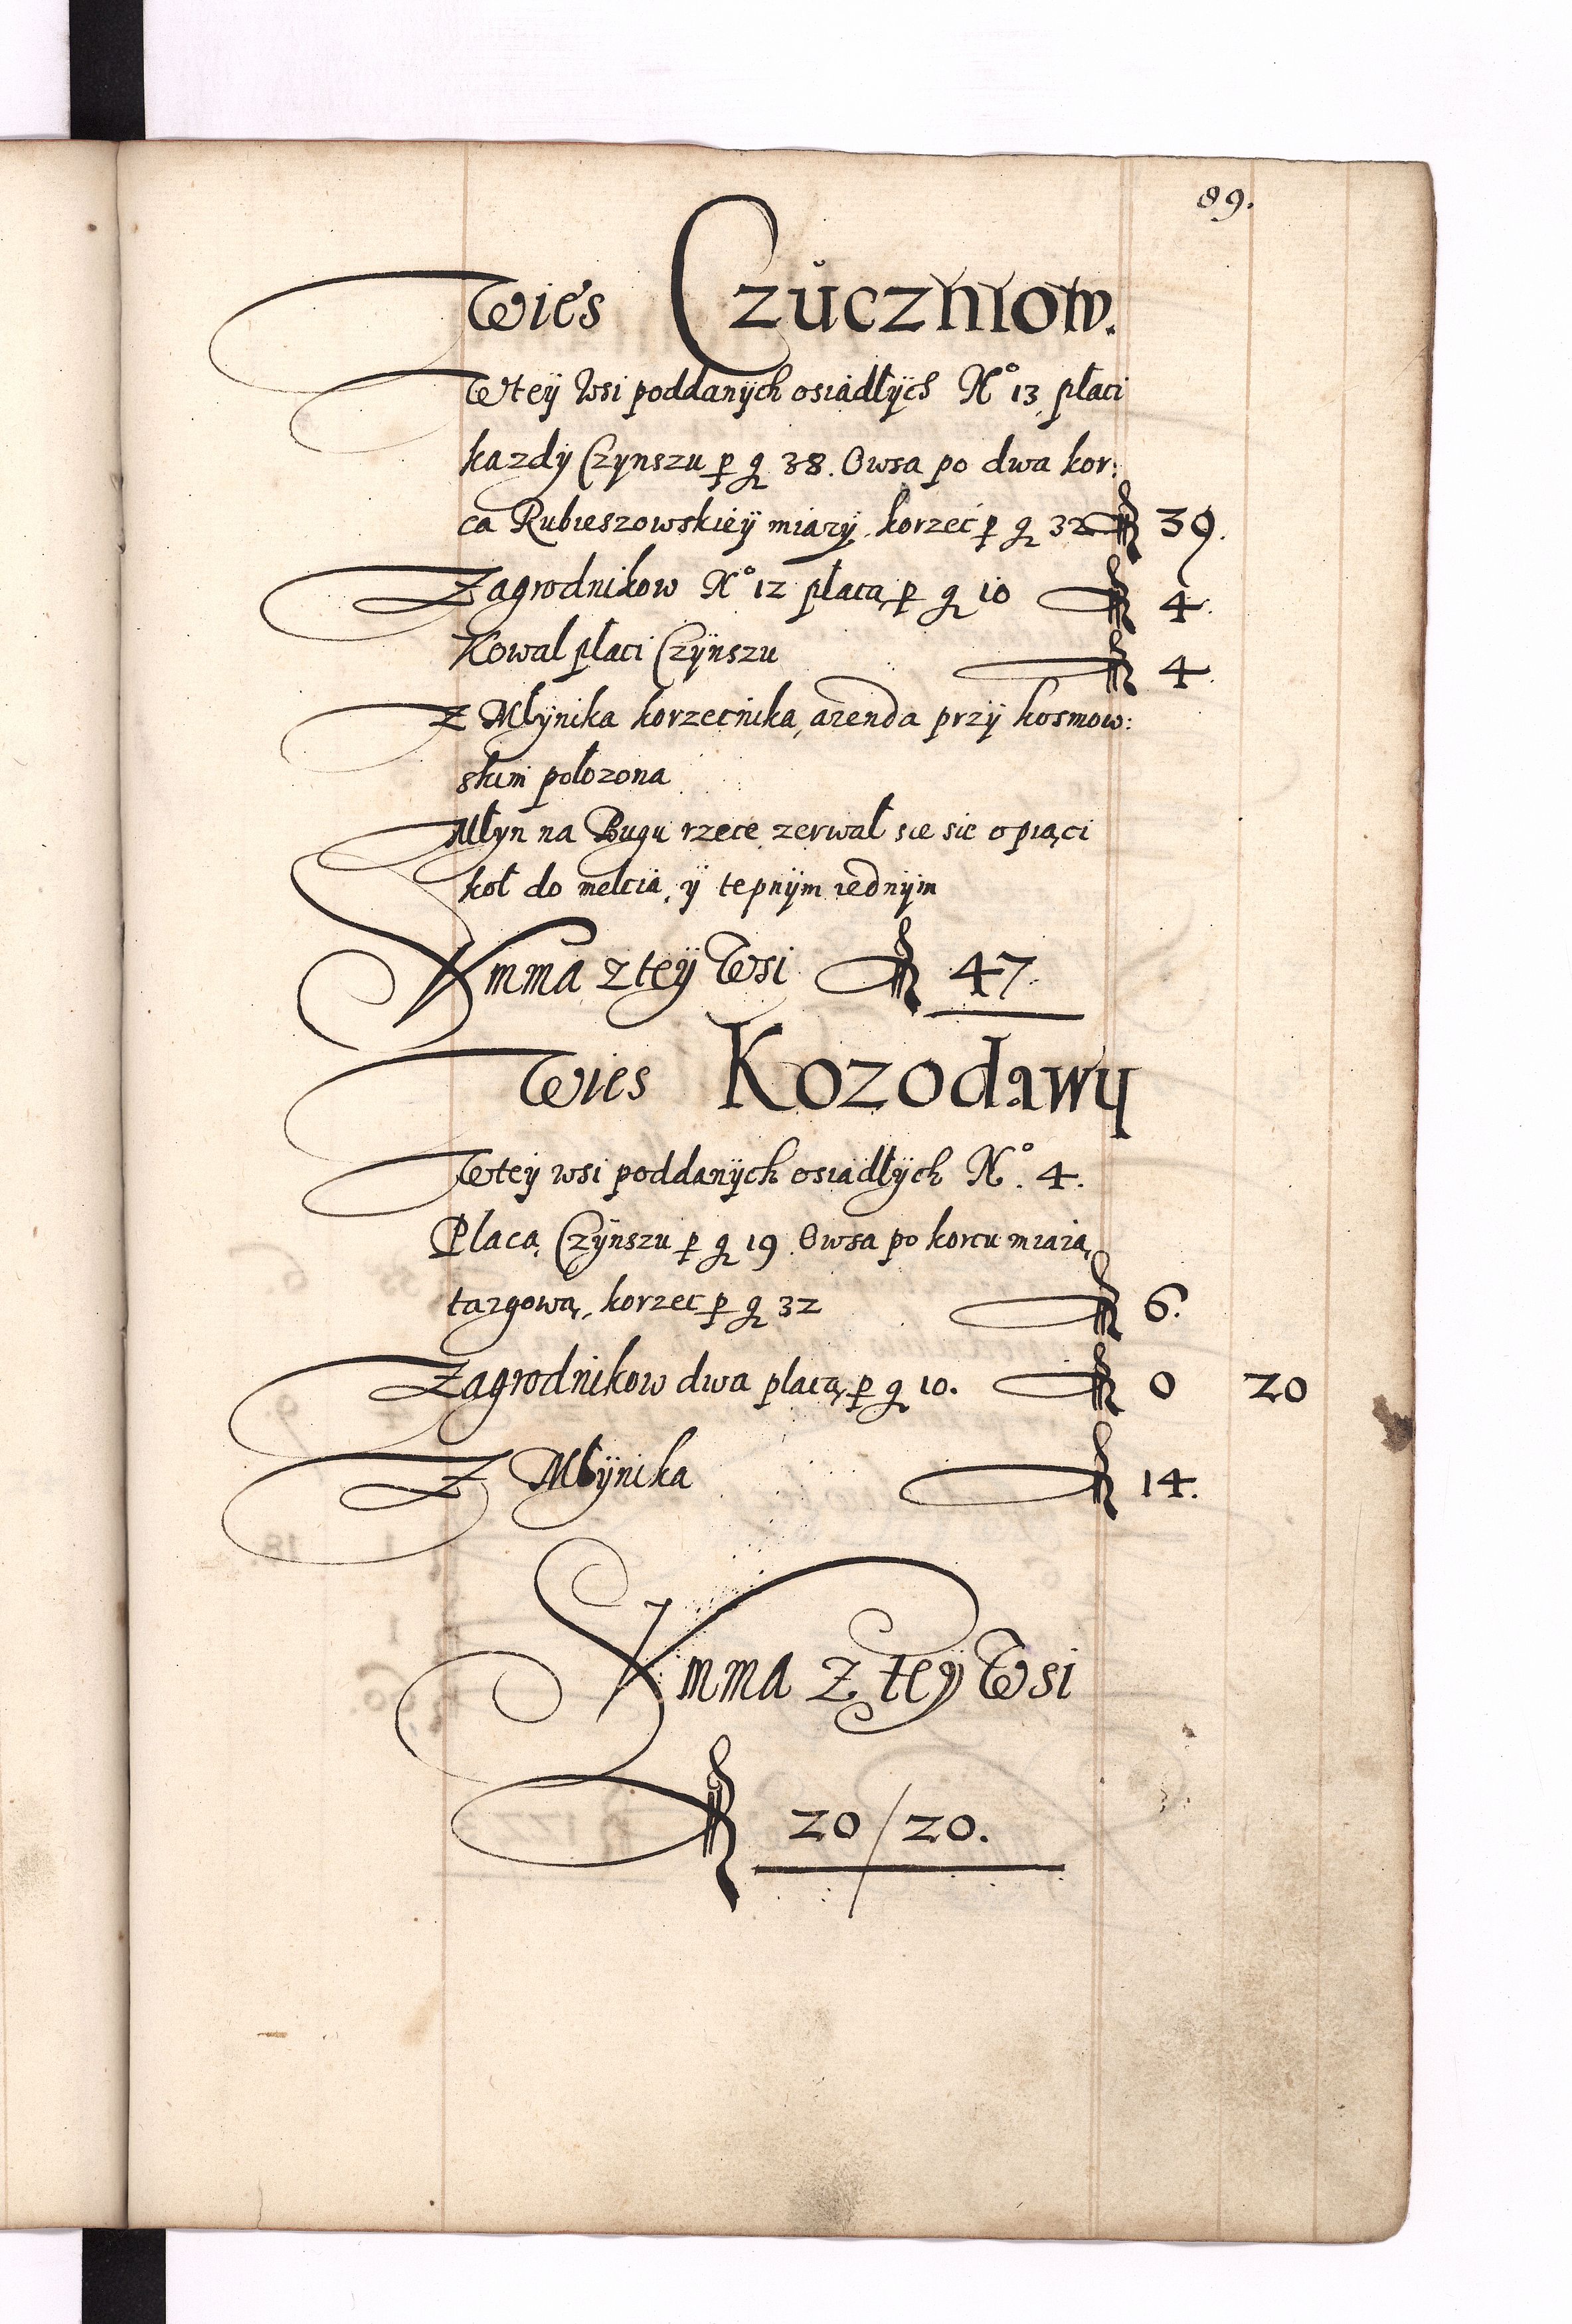 89.
Wies Czuczniow.
W tey Wsi poddanÿch osiadłÿch N° 13 płaci
kazdÿ Czynszu p g 38. Owsa po dwa kor:
ca Rubieszowskieÿ miarÿ. korzec p g 32 39.
Zagrodnikow N° 12 płacą p g 10 4.
Kowal płaci Czÿnszu 4.
Z Młÿnika korzecnika, arenda przÿ kosmow:
skim połozona
Młyn na Bugu rzece zerwał sie sie o piąci
koł do melcia, ÿ tepnÿm iednÿm
Summa z teÿ Wsi 47.
Wies Kozodawy
W teÿ wsi poddanÿch osiadłÿch N°. 4.
Płacą Czÿnszu p g 19 Owsa po korcu miarą
targową, korzec p g 32 6.
Zagrodnikow dwa płacą p g 10. 0 20
Z Młÿnika 14.
Summa z teÿ Wsi
20/20.